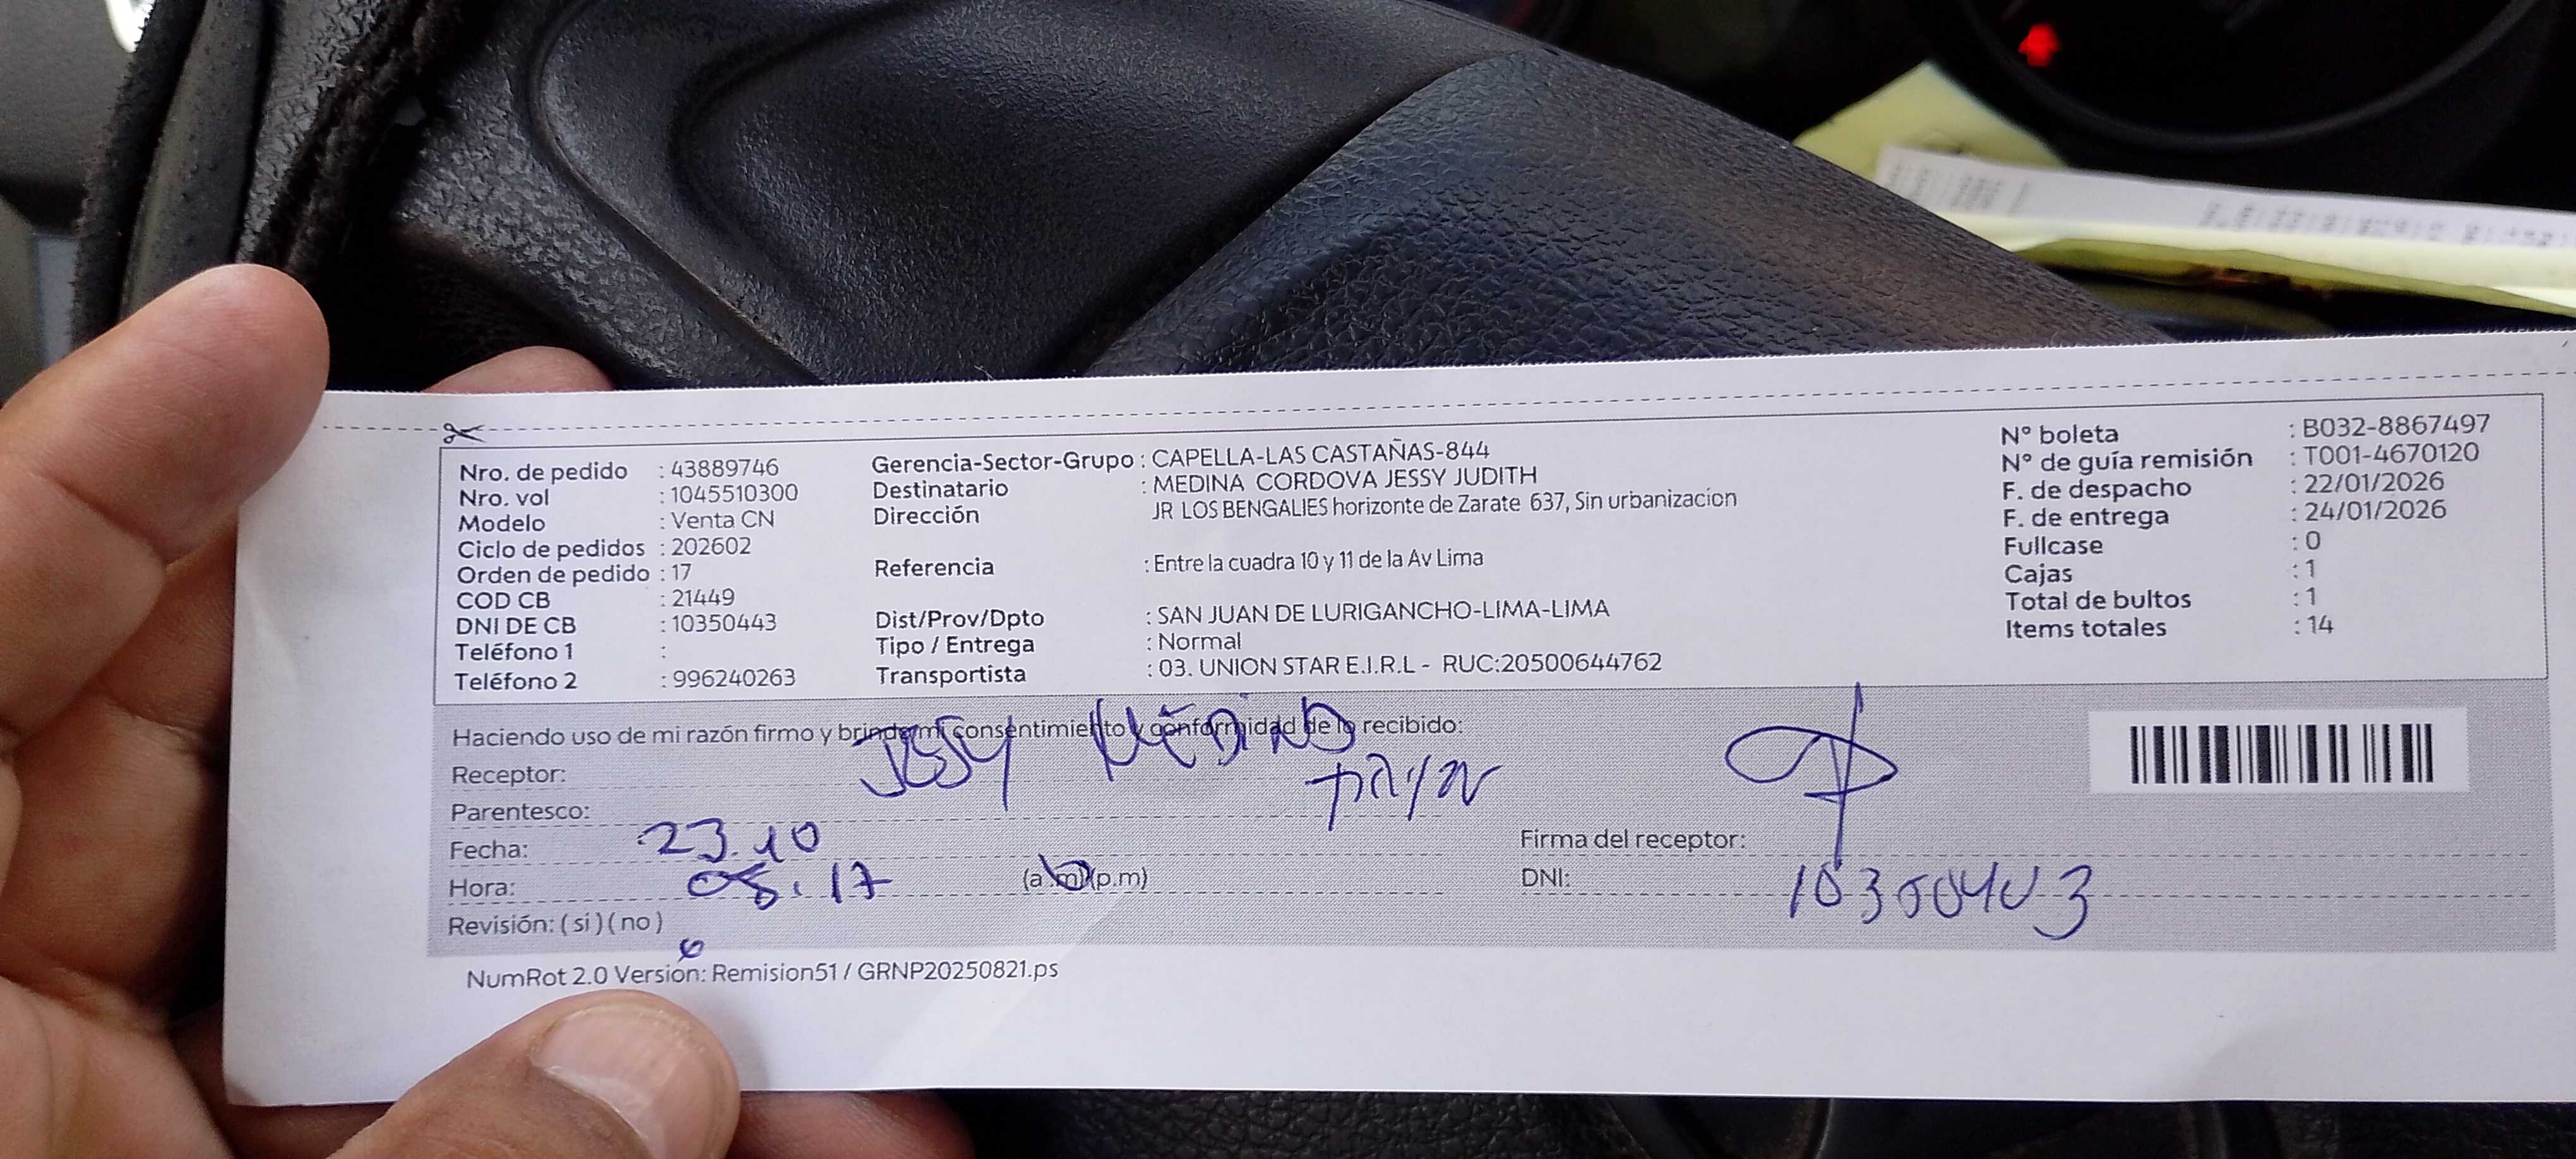 Nro. de pedido : 43889746
Nro. vol : 1045510300
Modelo : Venta CN
Ciclo de pedidos : 202602
Orden de pedido : 17
COD CB : 21449
DNI DE CB : 10350443
Teléfono 1 :
Teléfono 2 : 996240263
Gerencia-Sector-Grupo : CAPELLA-LAS CASTAÑAS-844
Destinatario : MEDINA CORDOVA JESSY JUDITH
Dirección JR LOS BENGALIES horizonte de Zarate 637, Sin urbanizacion
Referencia : Entre la cuadra 10 y 11 de la Av Lima
Dist/Prov/Dpto : SAN JUAN DE LURIGANCHO-LIMA-LIMA
Tipo / Entrega : Normal
Transportista : 03. UNION STAR E.I.R.L - RUC:20500644762
Nº boleta : B032-8867497
Nº de guía remisión : T001-4670120
F. de despacho : 22/01/2026
F. de entrega : 24/01/2026
Fullcase : 0
Cajas : 1
Total de bultos : 1
Items totales : 14
Haciendo uso de mi razón firmo y brindo mi consentimiento y conformidad de lo recibido:
Receptor: JESSY MEDINA
Parentesco:
Fecha: 23.10
Hora: 08:17 (a.m)(p.m)
Revisión: ( si ) ( no )
Firma del receptor:
DNI:
NumRot 2.0 Version: Remision51 / GRNP20250821.ps